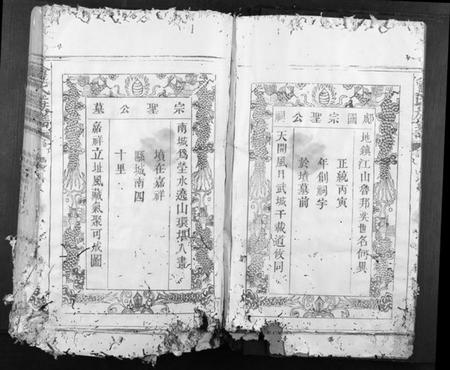 郕國宗聖公祠
地鎮江山魯邦奕世名何異
正統丙寅
年創祠宇
於墳墓前
天開風月武城千載道攸同
宗聖公墓
南城為塋水遶山環擬入畫
墳在嘉祥
縣城南四
十里
嘉祥立址風藏氣聚可成圖